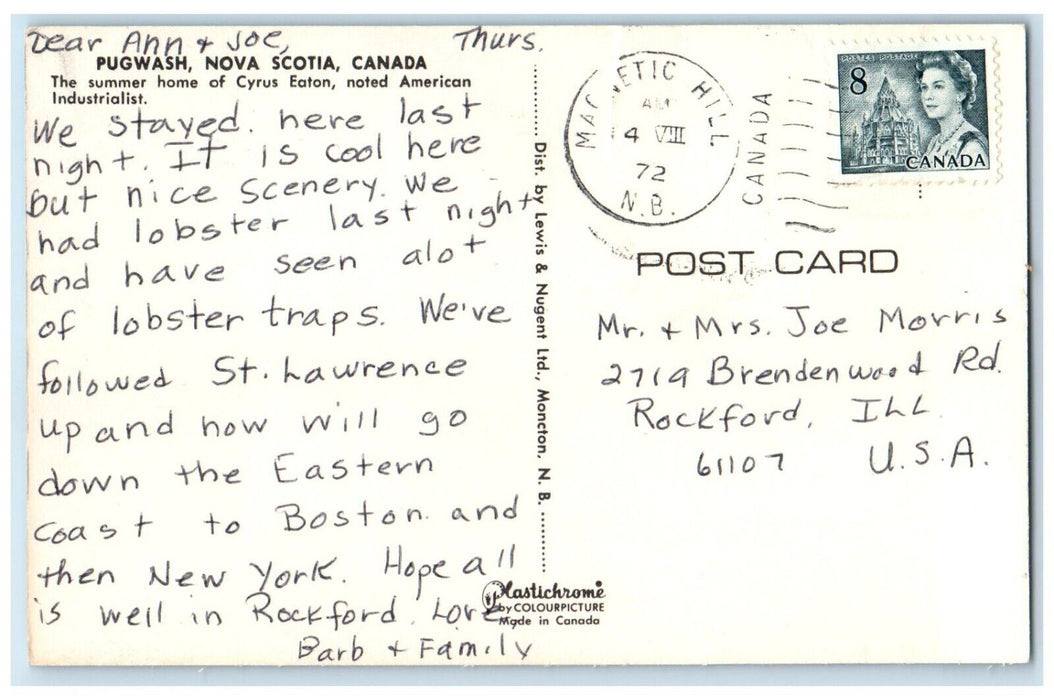 Dear Ann + Joe, Thurs.
PUGWASH, NOVA SCOTIA, CANADA
The summer home of Cyrus Eaton, noted American
Industrialist.
We stayed here last
night. It is cool here
but nice scenery. We
had lobster last night
and have seen alot
of lobster traps. We've
followed St. Lawrence
up and now will go
down the Eastern
coast to Boston and
then New York. Hope all
is well in Rockford. Love
Barb + Family
Dist. by Lewis & Nugent Ltd., Moncton, N. B.
Plastichrome
by COLOURPICTURE
Made in Canada
MAGNETIC HILL
AM
4 VIII
72
N.B.
CANADA
POSTES POSTAGE
8
CANADA
POST CARD
Mr. + Mrs. Joe Morris
2719 Brendenwood Rd.
Rockford, ILL.
61107 U.S.A.